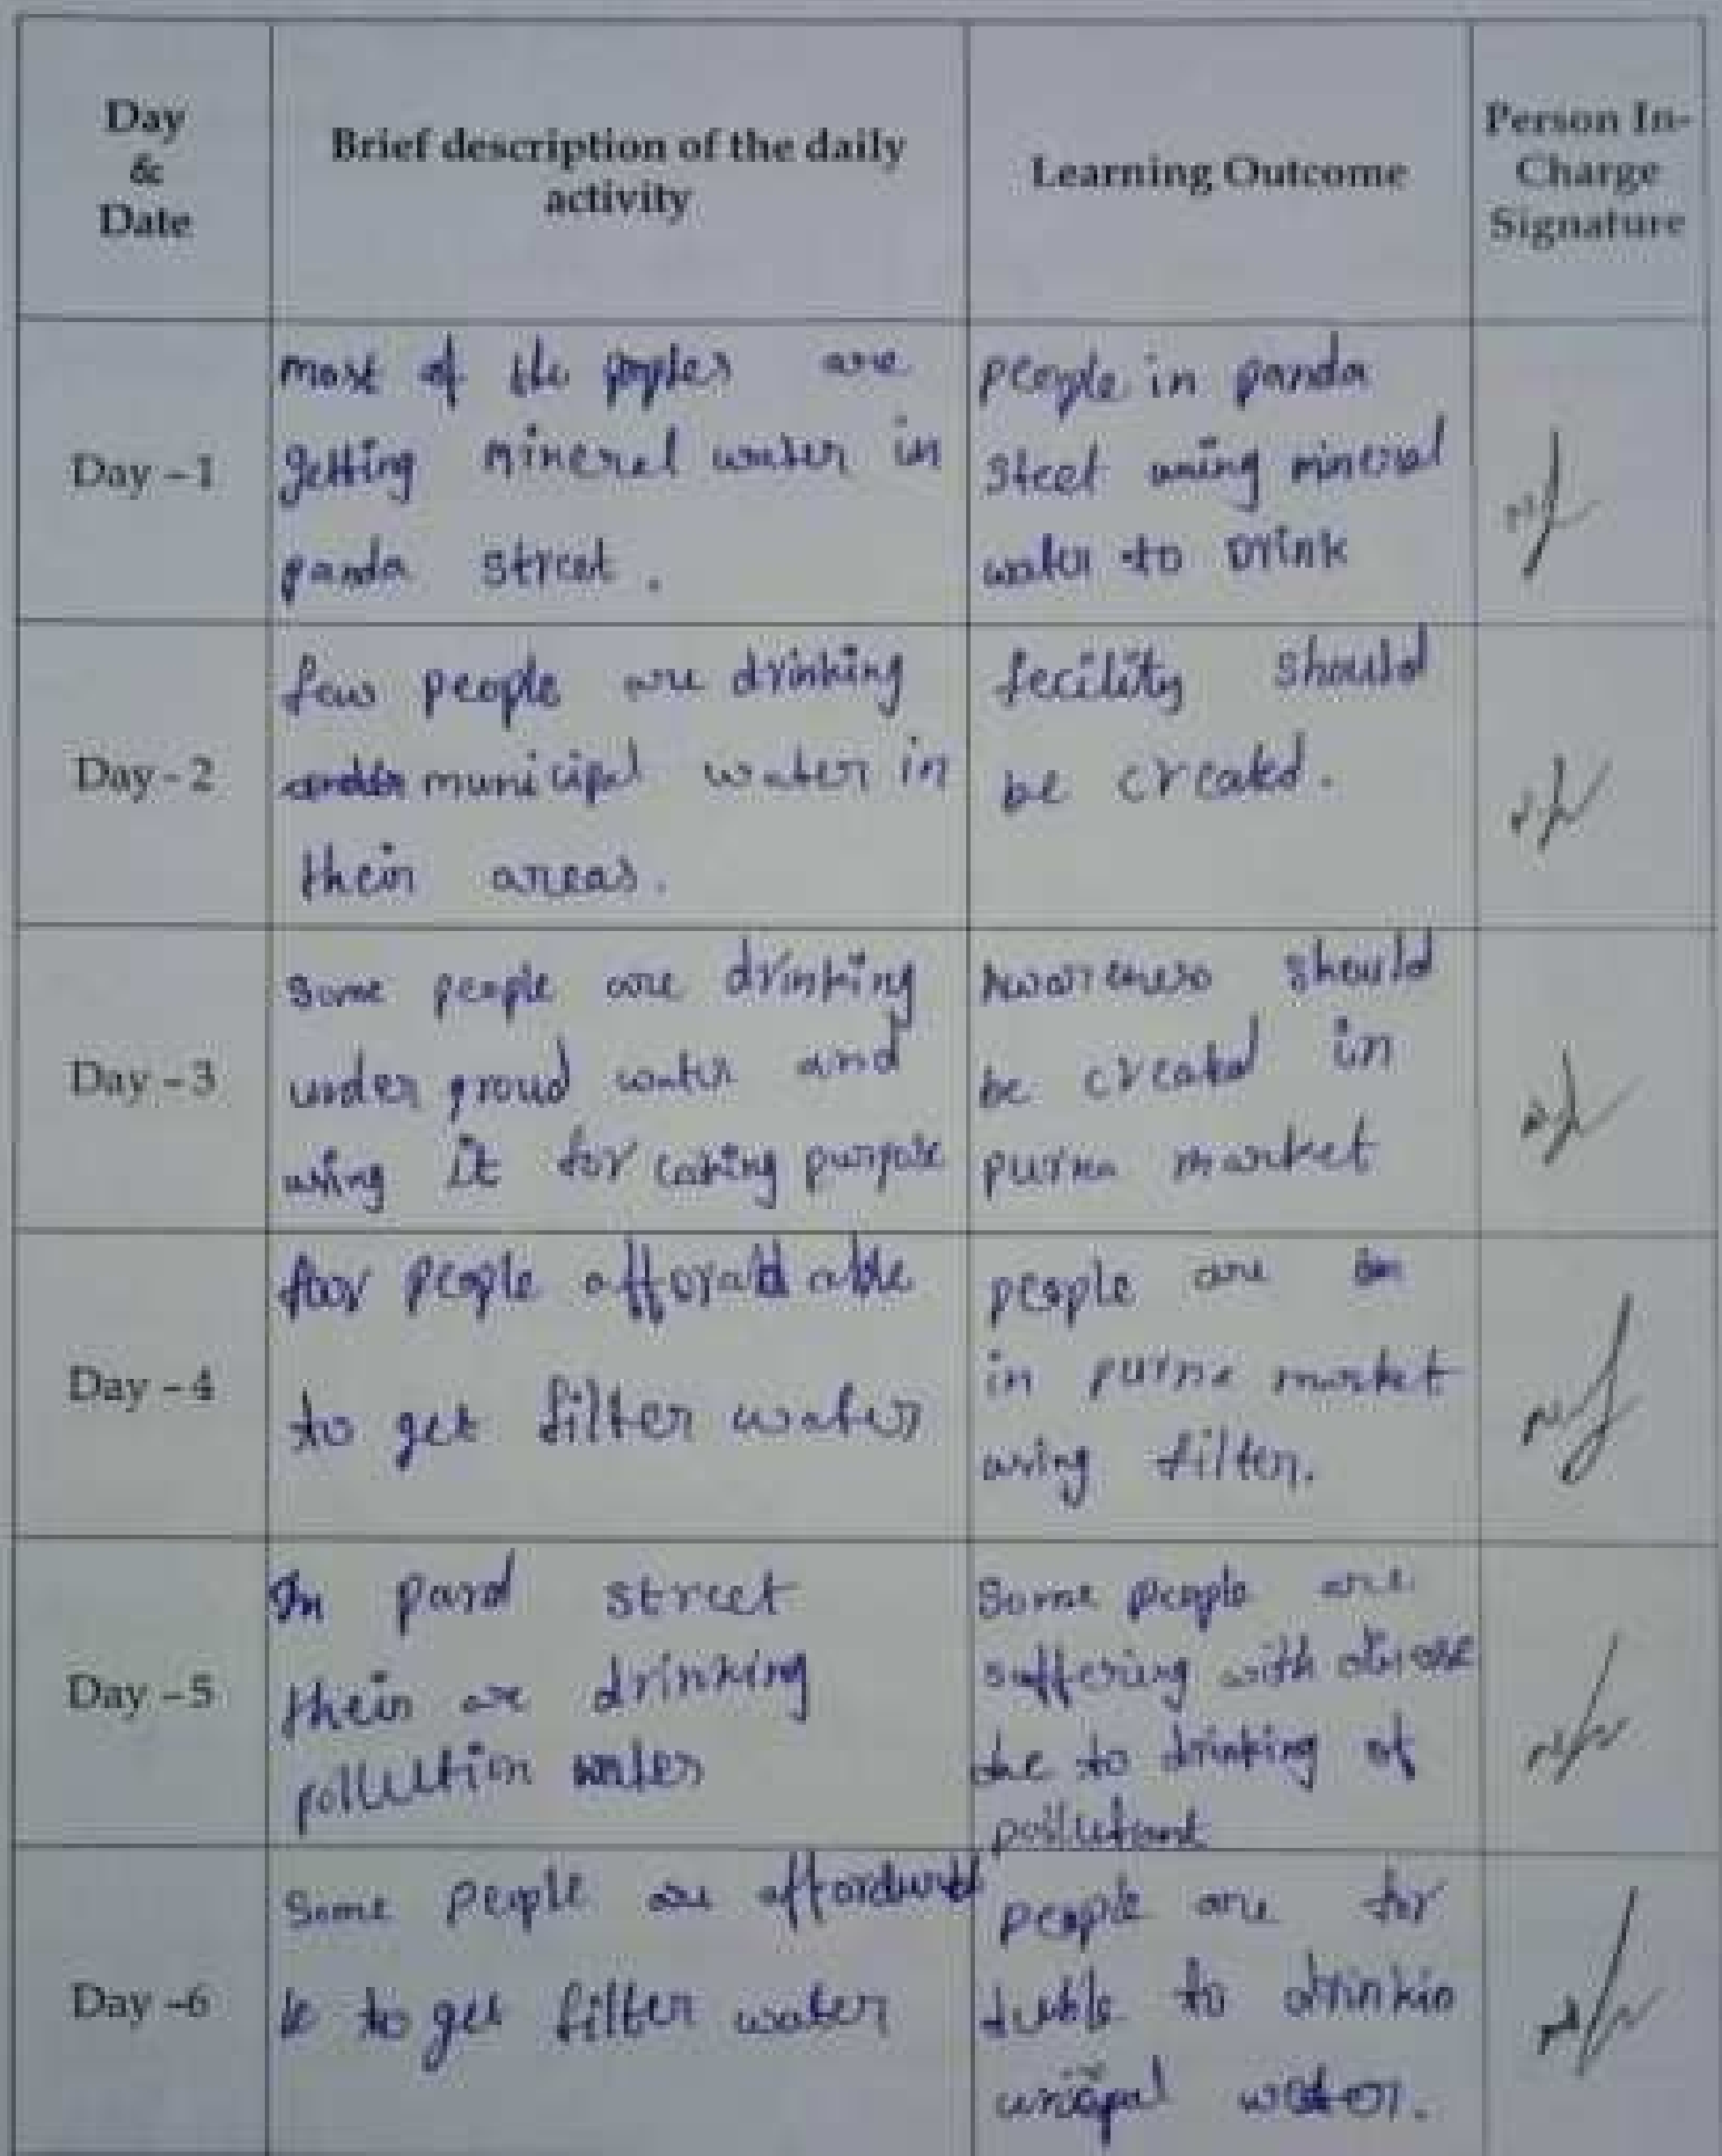 Day
&
Date
Brief description of the daily
activity
Learning Outcome
Person In-
Charge
Signature
Day - 1
most of the peoples are
getting mineral water in
panda street.
people in panda
steet using mineral
water to Drink
Day - 2
few people are drinking
municipal water in
their areas.
fecility should
be created.
Day - 3
some people are drinking
under groud water and
using it for purpose
Awareness should
be created in
purna market
Day - 4
poor people able
to get filter water
people are
in purna market
using filter.
Day - 5
In pard street
their are drinking
pollution water
Some people are
suffering with disease
due to drinking of
pollutant
Day -6
Some people are
to get filter water
people are for
to drinkin
water.